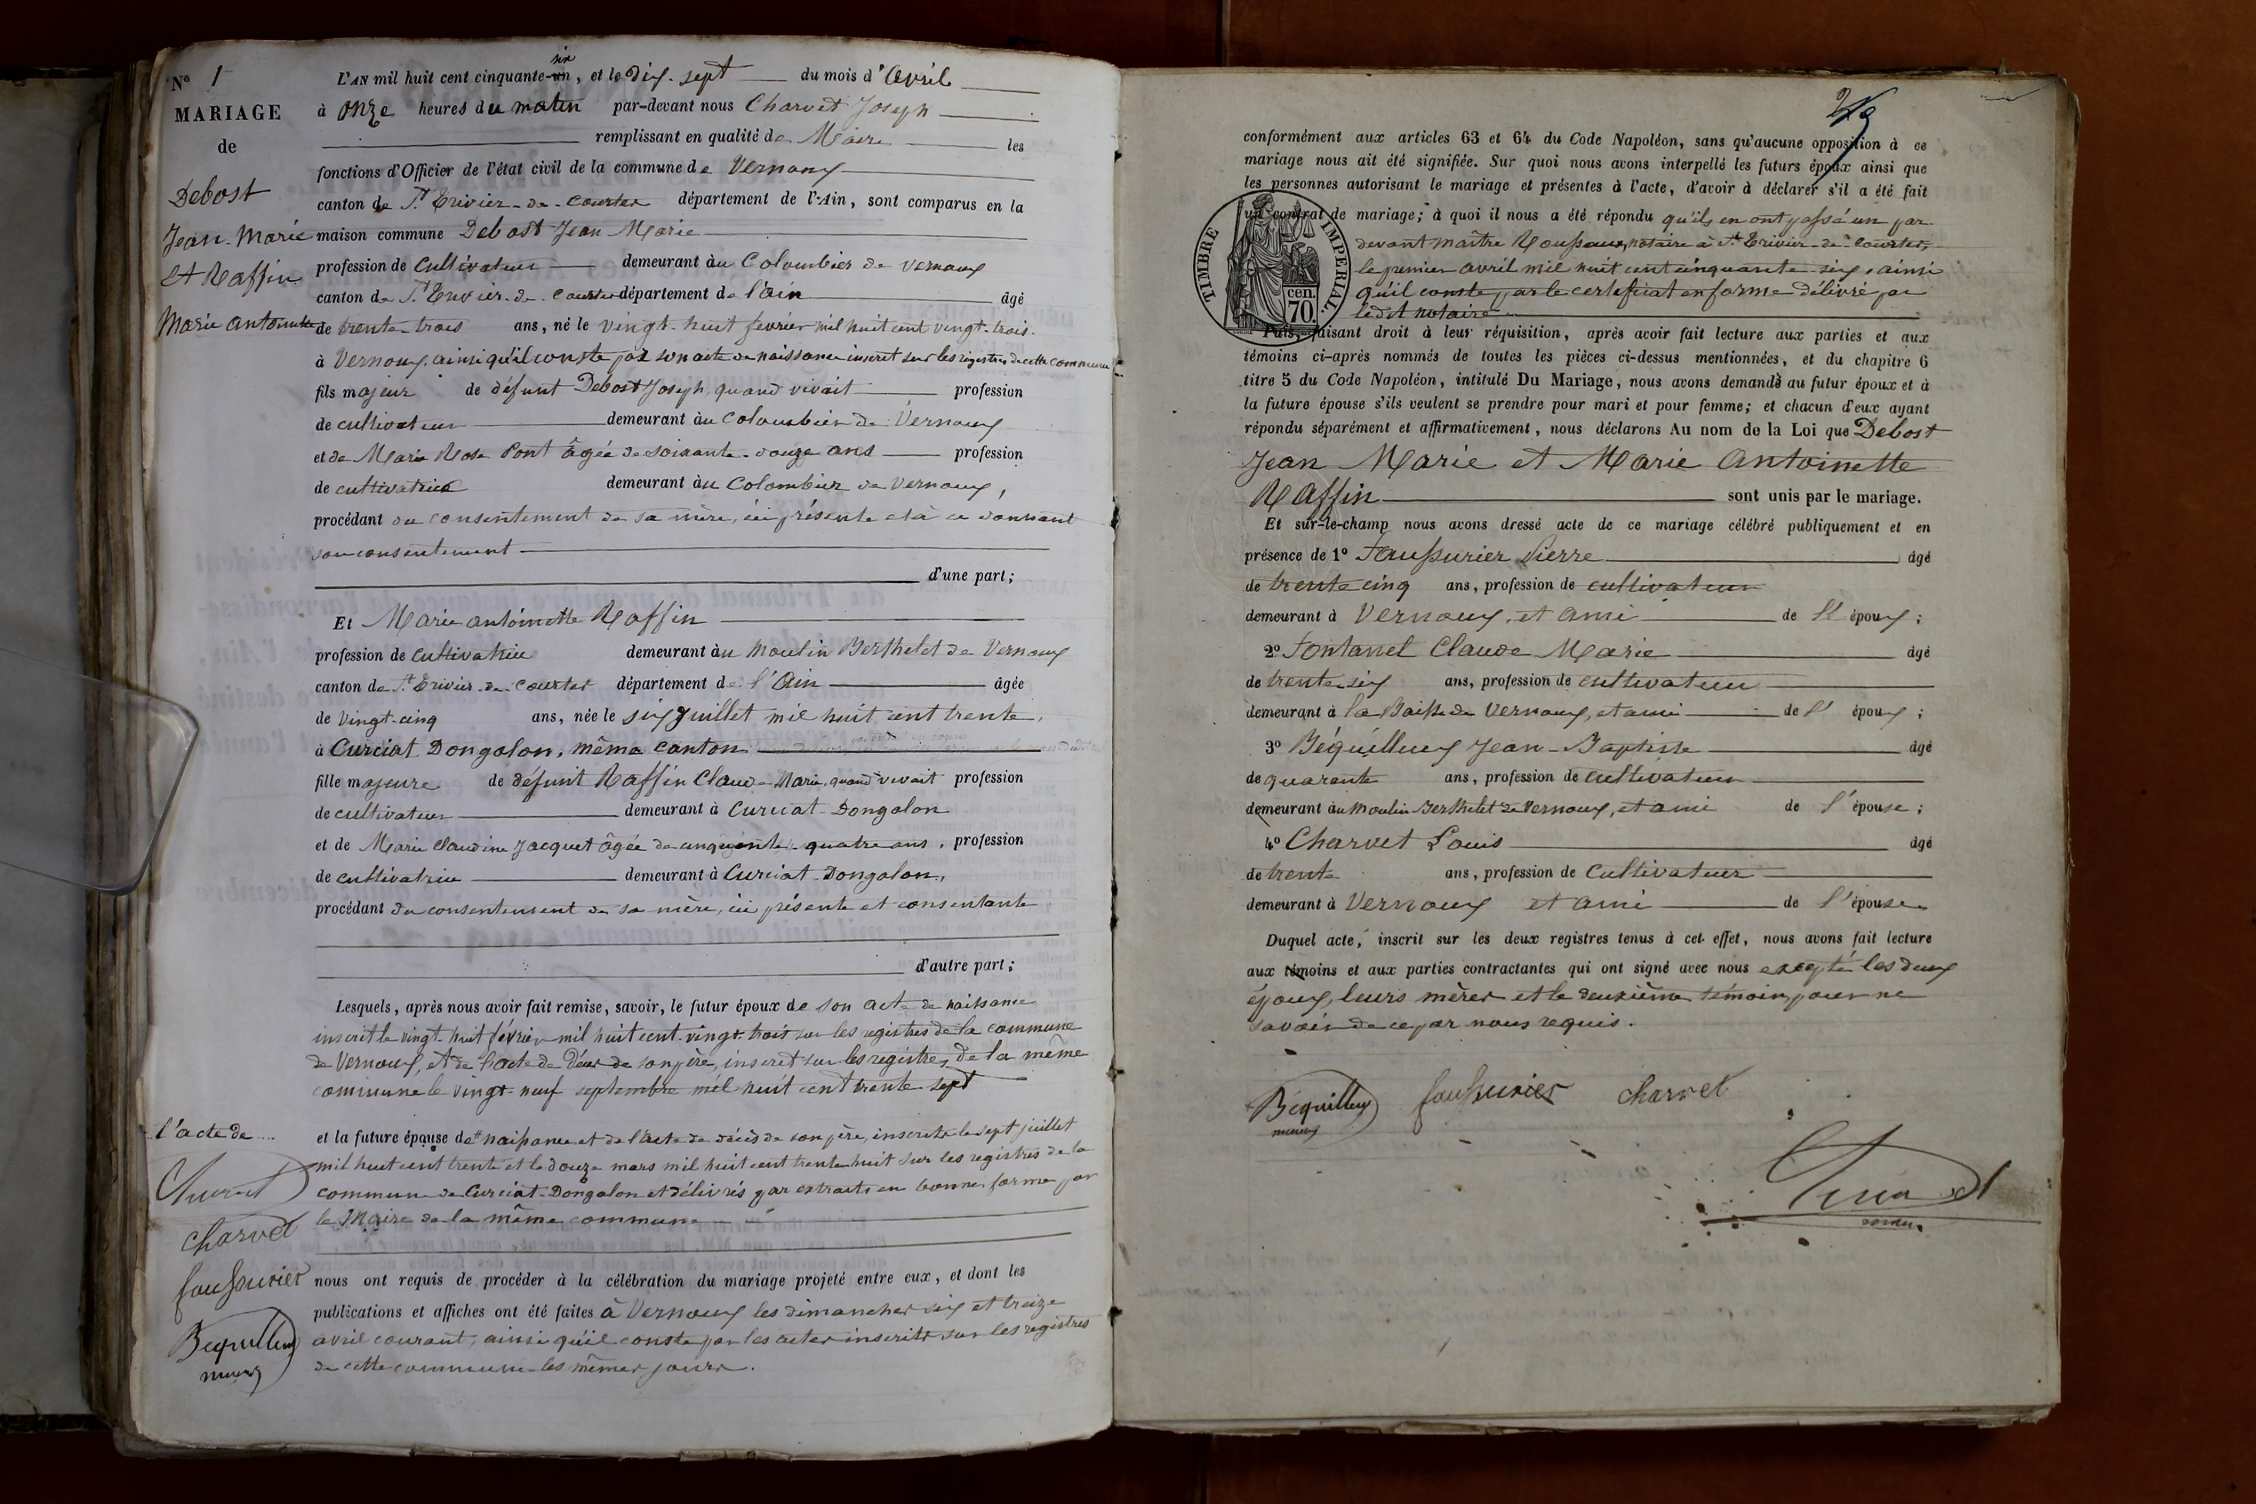 Nº 1
MARIAGE
de
Debost
Jean-Marie
et Raffin
Marie antoinette
L'AN mil huit cent cinquante-six, et le dix-sept du mois d'avril
à onze heures du matin par-devant nous Charvet Joseph
remplissant en qualité de Maire les
fonctions d'Officier de l'état civil de la commune de Vernoux
canton de St Trivier-de-Courtes département de l'Ain, sont comparus en la
maison commune Debost Jean Marie
profession de cultivateur demeurant au Colombier de Vernoux
canton de St Trivier-de-Courtes département de l'ain âgé
de trente-trois ans, né le vingt-huit février mil huit cent vingt-trois
à Vernoux, ainsi qu'il conste par son acte de naissance inscrit sur les registres de cette commune
fils majeur de défunt Debost Joseph, quand vivait profession
de cultivateur demeurant au Colombier de Vernoux
et de Marie Rose Pont âgée de soixante-douze ans profession
de cultivatrice demeurant au Colombier de Vernoux,
procédant du consentement de sa mère, ici présente et à ce donnant
son consentement
d'une part;
Et Marie antoinette Raffin
profession de cultivatrice demeurant au Moulin Berthelet de Vernoux
canton de St Trivier-de-Courtes département de l'Ain âgée
de vingt-cinq ans, née le six Juillet mil huit cent trente,
à Curciat Dongalon, même canton
fille majeure de défunt Raffin Claude-Marie, quand vivait profession
de cultivateur demeurant à Curciat-Dongalon
et de Marie Claudine Jacquet âgée de cinquante-quatre ans, profession
de cultivatrice demeurant à Curciat-Dongalon,
procédant du consentement de sa mère, ici présente et consentante
d'autre part;
Lesquels, après nous avoir fait remise, savoir, le futur époux de son acte de naissance
inscrit le vingt-huit février mil huit cent-vingt-trois sur les registres de la commune
de Vernoux, et de l'acte de décès de son père, inscrit sur les registres de la même
commune le vingt-neuf septembre mil huit cent trente sept
l'acte de
et la future épouse de naissance et de l'acte de décès de son père, inscrits le sept juillet
mil huit cent trente et le douze mars mil huit cent trente huit sur les registres de la
commune de Curciat-Dongalon et délivrés par extraits en bonne forme par
le Maire de la même commune
Charvet
faussurier
Bequilleux
nous ont requis de procéder à la célébration du mariage projeté entre eux, et dont les
publications et affiches ont été faites à Vernoux les dimanches six et treize
avril courant, ainsi qu'il conste par les actes inscrits sur les registres
de cette commune les mêmes jours.
conformément aux articles 63 et 64 du Code Napoléon, sans qu'aucune opposition à ce
mariage nous ait été signifiée. Sur quoi nous avons interpellé les futurs époux ainsi que
les personnes autorisant le mariage et présentes à l'acte, d'avoir à déclarer s'il a été fait
un contrat de mariage; à quoi il nous a été répondu qu'ils en ont passé un par
devant maître Roussaux, notaire à St Trivier-de-Courtes,
le premier avril mil huit cent cinquante-six, ainsi
qu'il conste par le certificat en forme délivré par
le dit notaire
TIMBRE IMPERIAL.
70 cen.
Puis, faisant droit à leur réquisition, après avoir fait lecture aux parties et aux
témoins ci-après nommés de toutes les pièces ci-dessus mentionnées, et du chapitre 6
titre 5 du Code Napoléon, intitulé Du Mariage, nous avons demandé au futur époux et à
la future épouse s'ils veulent se prendre pour mari et pour femme; et chacun d'eux ayant
répondu séparément et affirmativement, nous déclarons Au nom de la Loi que Debost
Jean Marie et Marie Antoinette
Raffin sont unis par le mariage.
Et sur-le-champ nous avons dressé acte de ce mariage célébré publiquement et en
présence de 1º Faussurier Pierre âgé
de trente cinq ans, profession de cultivateur
demeurant à Vernoux, et ami de l'époux;
2º Fontanel Claude Marie âgé
de trente-six ans, profession de cultivateur
demeurant à la Baisse de Vernoux, et ami de l'époux;
3º Béquilleux Jean-Baptiste âgé
de quarante ans, profession de cultivateur
demeurant au Moulin Berthelet de Vernoux, et ami de l'épouse;
4º Charvet Louis âgé
de trente ans, profession de cultivateur
demeurant à Vernoux et ami de l'épouse.
Duquel acte, inscrit sur les deux registres tenus à cet effet, nous avons fait lecture
aux témoins et aux parties contractantes qui ont signé avec nous excepté les deux
époux, leurs mères et le deuxième témoin, pour ne
savoir de ce par nous requis.
Bequilleux faussurier charvet